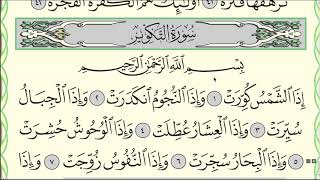 ترهقها قترة ٤١ أولئك هم الكفرة الفجرة ٤٢
سورة التكوير
بِسْمِ ٱللَّهِ ٱلرَّحْمَٰنِ ٱلرَّحِيمِ
إِذَا ٱلشَّمْسُ كُوِّرَتْ ١ وَإِذَا ٱلنُّجُومُ ٱنكَدَرَتْ ٢ وَإِذَا ٱلْجِبَالُ
سُيِّرَتْ ٣ وَإِذَا ٱلْعِشَارُ عُطِّلَتْ ٤ وَإِذَا ٱلْوُحُوشُ حُشِرَتْ
٥ وَإِذَا ٱلْبِحَارُ سُجِّرَتْ ٦ وَإِذَا ٱلنُّفُوسُ زُوِّجَتْ ٧ وَإِذَا